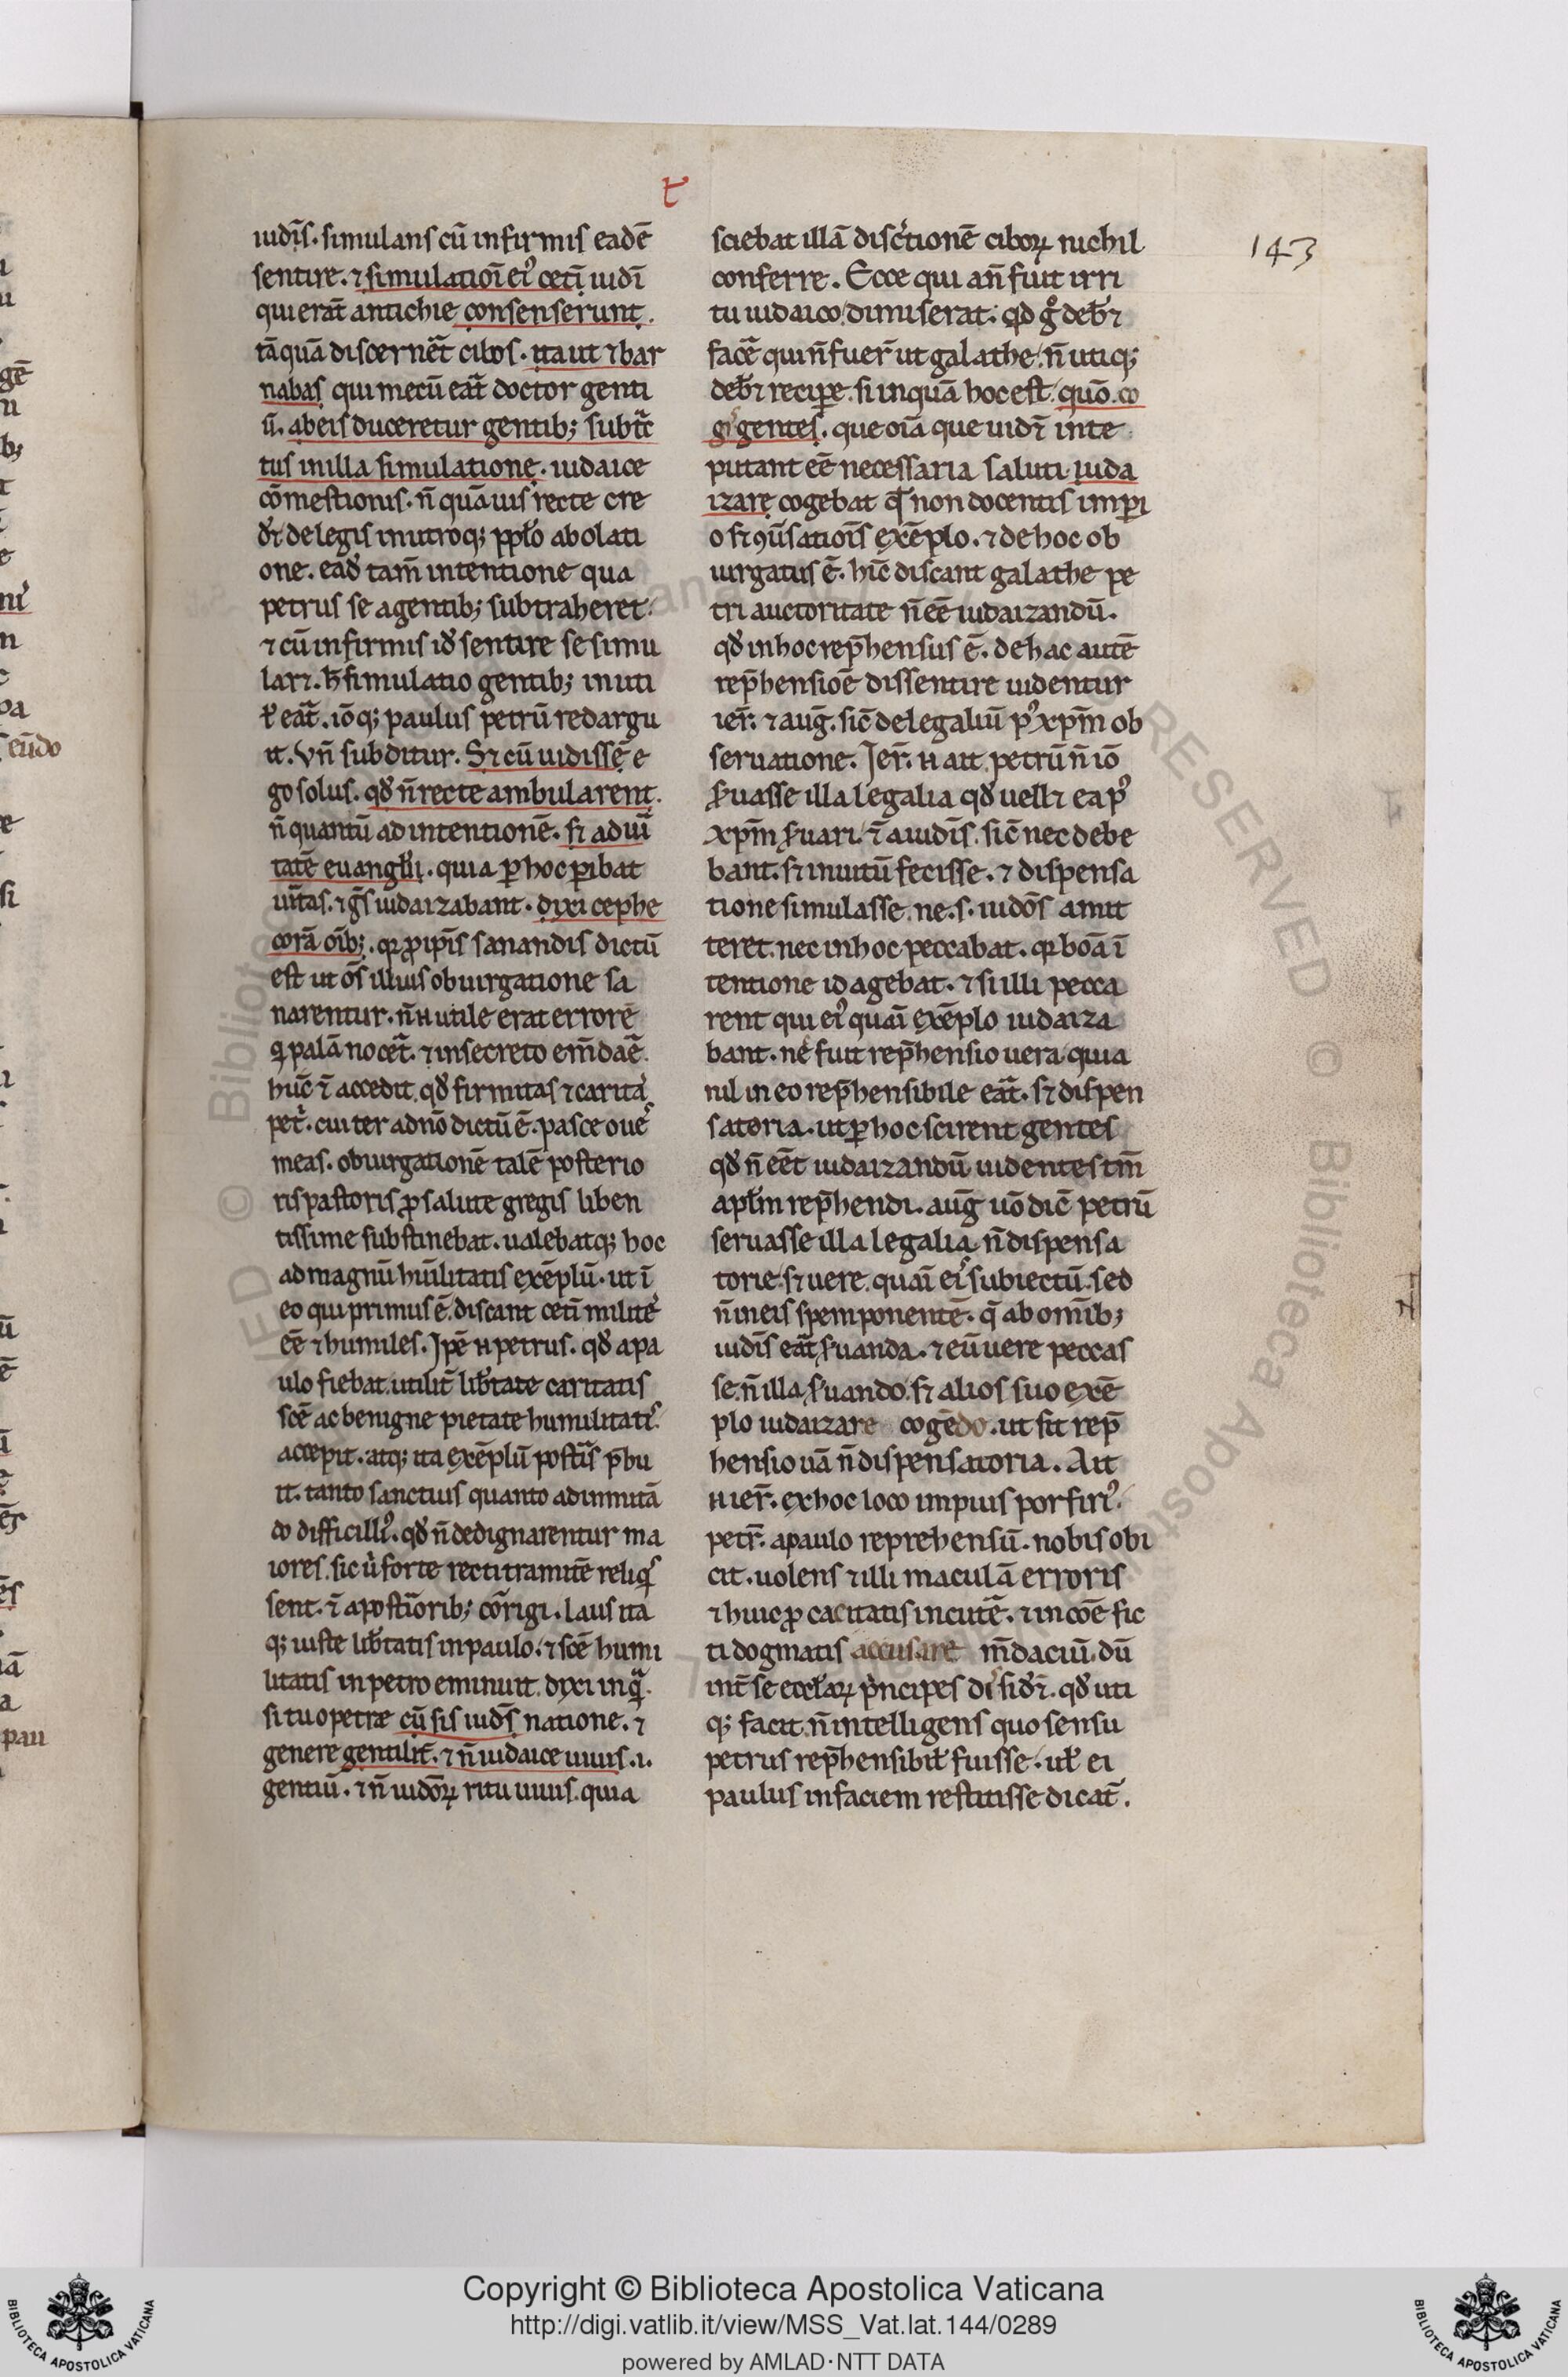 t
143
iudīs. simulans cū infirmis eadē
sentire. ⁊ simulatiōi ei᷒ cet̄i iudi
qui erāt antichie consenserunt.
tāquā discernēt cibos. ita ut ⁊ bar
nabas qui mecū eāt doctor genti
ū. ab eis duceretur gentib; subtͣc
tus in illa simulatione. iudaice
cōmestionis. n̄ quāuis recte cre
d̄et de legis in utroq; pp̄lo abolati
one. ead̄ tam̄ intentione qua
petrus se a gentib; subtraheret.
⁊ cū infirmis id̄ sentire se simu
lar⁊. h̄ simulatio gentib; inuti
l̄ eāt. iōq; paulus petrū redargu
it. Vn̄ subditur. S⁊ cū uidissē e
go solus. qd̄ n̄ recte ambularent.
n̄ quantū ad intentionē. s⁊ ad ui
tatē euanglīi. quia ꝑ hoc ꝑibat
uītas. ⁊ gs̄ iudaizabant. dixi cephe
corā oīb;. qꝛ ꝓ ip̄is sanandis dictū
est ut oēs illius obiurgatione sa
narentur. n̄ n̄ utile erat errorē
q̇ palā nocēt. ⁊ in secreto em̄daē.
huc̄ ⁊̄ accedit. qd̄ firmitas ⁊ caritas
pet̄. cui ter a dn̄o dictū ē. pasce oues
meas. obiurgationē talē posterio
ris pastoris ꝓ salute gregis liben
tissime substinebat. ualebatq; hoc
ad magnū hūilitatis exēplū. ut ī
eo qui primus ē. discant cet̄i milites
eē ⁊ humiles. Ipē n̄ petrus. qd̄ a pa
ulo fiebat. utilit̄ lib̄tate caritatis
scē ac benigne pietate humilitatis.
accepit. atq; ita exēplū postīs p̄bu
it. tanto sanctius quanto ad imitā
do difficilli᷒. qd̄ n̄ dedignarentur ma
iores. sicùi forte recti tramitē reliq̇s
sent. ⁊̄ a postīorib; cōrigi. laus ita
q; iuste lib̄tatis in paulo. ⁊ scē humi
litatis in petro eminuit. dixi inq̄.
si tu o petre cū sis iuds̄ natione. ⁊
genere gentilit̄. ⁊ n̄ iudaice uiuis. .i.
gentiū. ⁊ n̄ iudōꝝ ritu uiuis. quia
sciebat illā disc̄tionē ciboꝝ nichil
conferre. Ecce qui an̄ fuit irri
tu iudaico dimiserat. qd̄ gͦ deb̄⁊
facē qui n̄ fuer̄ ut galathe. n̄ utiq;
deb̄⁊ recipe. si inquā hoc est. quō. co
gis gentes. que oīa que uid⁊ inte
putant eē necessaria saluti. iuda
izare cogebat q̄ non docentis imꝑi
o s⁊ ꝯūsationis exēplo. ⁊ de hoc ob
iurgatus ē. hic̄ discant galathe pe
tri auctoritate n̄ eē iudaizandū.
qd̄ in hoc rep̄hensus ē. de hac autē
rep̄hensiōe dissentire uidentur
ier̄. ⁊ auḡ. sic̄ de legaliū p᷒ xp̄m ob
seruatione. Jer̄. n̄ ait petrū n̄ iō
s̄uasse illa legalia qd̄ uell⁊ ea p᷒
xp̄m s̄uari. ⁊̄ a iudīs. sic̄ nec debe
bant. s⁊ inuitū fecisse. ⁊ dispensa
tione simulasse. ne .s. iudōs amit
teret. nec in hoc peccabat. qꝛ boā ī
tentione id agebat. ⁊ si illi pecca
rent qui ei᷒ quaī exēplo iudaiza
bant. ne fuit rep̄hensio uera quia
nil in eo rep̄hensibile eāt. s⁊ dispen
satoria. ut ꝑ hoc scirent gentes
qd̄ n̄ eēt iudaizandū uidentes tm̄
apl̄m rep̄hendi. auḡ uō dic̄ petrū
seruasse illa legalia. n̄ dispensa
torie. s⁊ uere. quaī ei᷒ subiectū. sed
n̄ in eis spem ponentē. q̄ ab omīb;
iudīs eāt s̄uanda. ⁊ eū uere peccas
se. n̄ illa s̄uando. s⁊ alios suo exē
plo iudaizare cogēdo. ut sit rep̄
hensio uā n̄ dispensatoria. Ait
n̄ ier̄. ex hoc loco impius porfiri᷒.
petr̄. a paulo reprehensū. nobis obi
cit. uolens ⁊ illi maculā erroris
⁊ huic ꝓcacitatis incutē. ⁊ in coē fic
ti dogmatis accusare m̄daciū. dū
int̄ se eccl̄aꝝ p̄ncipes dissid⁊. qd̄ uti
q; facit n̄ intelligens quo sensu
petrus rep̄hensibil̄ fuisse. ul̄ ei
paulus in faciem restitisse dicat̄.
Copyright © Biblioteca Apostolica Vaticana
http://digi.vatlib.it/view/MSS_Vat.lat.144/0289
powered by AMLAD·NTT DATA
BIBLIOTECA APOSTOLICA VATICANA
BIBLIOTECA APOSTOLICA VATICANA